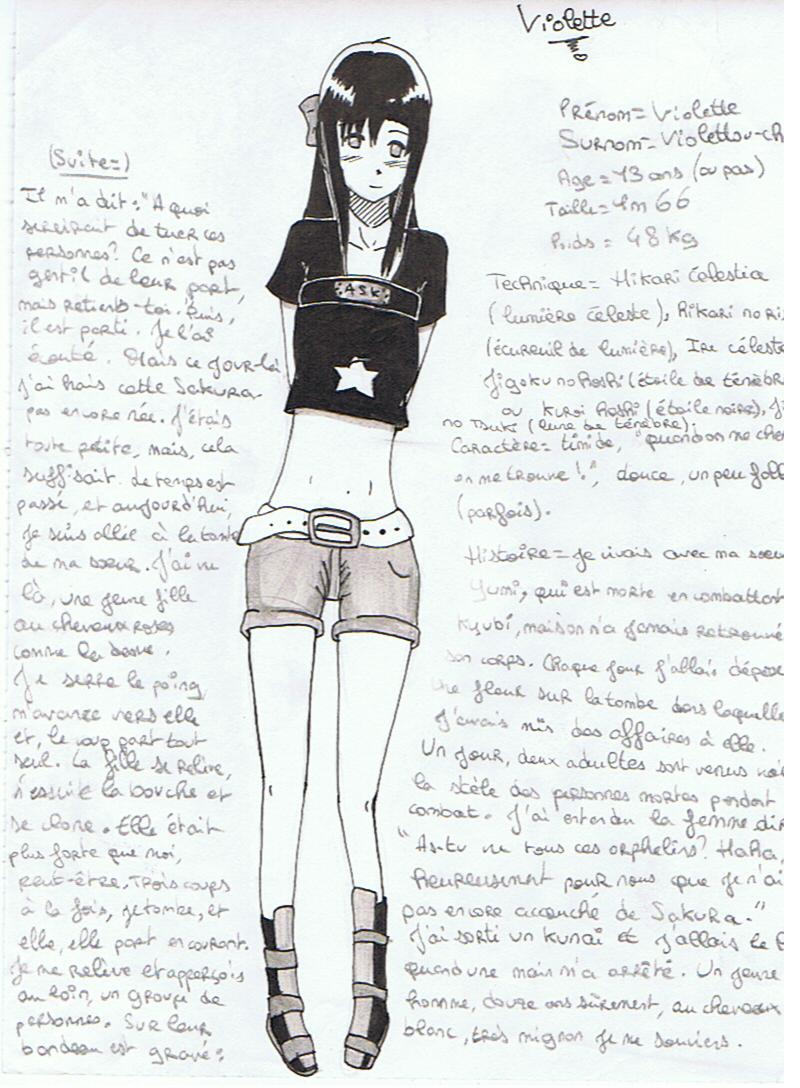 Violette
Prénom = Violette
Surnom = Violettou-ch
Age = 13 ans (ou pas)
Taille = 1m 66
Poids = 48 kg
Technique = Hikari Célestia
(lumière céleste), Hikari no ris
(écureuil de lumière), Ire céleste
Jigoku no Hoshi (étoile de ténèbr
ou Kuroi Hoshi (étoile noire), Ji
no Tsuki (lune de ténèbre).
Caractère = timide, "quand on me cher
on me trouve !", douce, un peu foll
(parfois).
Histoire = Je vivais avec ma soeu
Yumi, qui est morte en combattant
Kyubi, mais on n'a jamais retrouvé
son corps. Chaque jour j'allais dépose
une fleur sur la tombe dans laquelle
j'avais mis des affaires à elle.
Un jour, deux adultes sont venus voir
la stèle des personnes mortes pendant
combat. J'ai entendu la femme dir
"As-tu vu tous ces orphelins? Haha,
heureusement pour nous que je n'ai
pas encore accouché de Sakura."
J'ai sorti un kunai et j'allais le
quand une main m'a arrêté. Un jeune
homme, douze ans sûrement, au cheveux
blanc, très mignon je me souviens.
(Suite =)
Il m'a dit : "A quoi
serviraient de tuer ces
personnes? Ce n'est pas
gentil de leur part,
mais retiens-toi. Puis,
il est parti. Je l'ai
écouté. Mais ce jour-là
j'ai haïs cette Sakura
pas encore née. J'étais
toute petite, mais, cela
suffisait. Le temps est
passé, et aujourd'hui,
je suis allée à la tombe
de ma soeur. J'ai vu
là, une jeune fille
au cheveux roses
comme la dame.
Je serre le poing,
m'avance vers elle
et, le coup part tout
seul. La fille se relève,
s'essuie la bouche et
se clone. Elle était
plus forte que moi,
peut-être. Trois coups
à la fois, je tombe, et
elle, elle part en courant.
Je me relève et apperçois
au loin, un groupe de
personnes. Sur leur
bandeau est gravé :
ASK